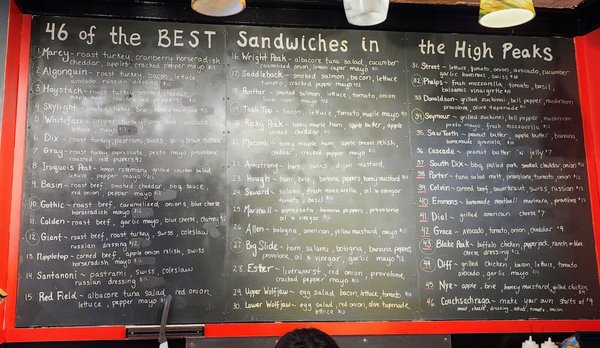 46 of the BEST Sandwiches in the High Peaks
1. Marcy - roast turkey, cranberry horseradish
cheddar, apple, cracked pepper mayo
2. Algonquin - roast turkey, bacon, lettuce,
avocado russian dressing
3. Haystack - roast turkey, smoked cheddar,
peppers
4. Skylight -
5. Whiteface - pepper turkey, provolone, avocado
lettuce, mayo
6. Dix - roast turkey, pastrami, swiss,
7. Gray - roast turkey, sopressata, pesto mayo, provolone
roasted red peppers
8. Iroquois Peak - lemon rosemary grilled chicken salad
lettuce, pepper mayo
9. Basin - roast beef, smoked cheddar, bbq sauce,
red onion, pepper mayo
10. Gothic - roast beef, caramelized onions, blue cheese
horseradish mayo
11. Colden - roast beef, garlic mayo, blue cheese,
12. Giant - roast beef, roast turkey, swiss, coleslaw
russian dressing
13. Nippletop - corned beef, apple onion relish, swiss
horseradish mayo
14. Santanoni - pastrami, swiss, coleslaw
russian dressing
15. Red Field - albacore tuna salad, red onion,
lettuce, pepper mayo
16. Wright Peak - albacore tuna salad, cucumber
onion, lemon caper mayo
17. Saddleback - smoked salmon, bacon, lettuce
tomatoes, cracked pepper mayo
Panther - smoked salmon, lettuce, tomato, onion
caper mayo
Table Top - bacon, lettuce, tomato maple mayo
Rocky Peak - honey maple ham, apple butter, apple
smoked cheddar
Macomb - honey maple ham, apple onion relish,
cheddar, cracked pepper mayo
Armstrong - ham, swiss, dijon mustard
23. Hough - ham, brie, banana peppers, honey mustard
24. Seward - salami, fresh mozzarella, oil & vinegar
tomato, basil
25. Marshall - sopressata, banana peppers, provolone,
oil & vinegar
26. Allen - bologna, american, yellow mustard, mayo
27. Big Slide - ham, salami, bologna, banana peppers
provolone, oil & vinegar, garlic mayo
28. Ester - liverwurst, red onion, provolone,
cracked pepper mayo
29. Upper Wolfjaw - egg salad, bacon, lettuce, tomato
30. Lower Wolfjaw - egg salad, red onion, olive tapenade,
lettuce
31. Street - lettuce, tomato, onion, avocado, cucumber
garlic hummus, swiss
32. Phelps - fresh mozzarella, tomato, basil,
balsamic vinaigrette
33. Donaldson - grilled zucchini, bell pepper, mushroom
provolone, olive tapenade
34. Seymour - grilled zucchini, bell pepper, mushroom
pesto mayo, fresh mozzarella
35. Saw Teeth - peanut butter, apple, banana,
homemade granola
36. Cascade - peanut butter 'n jelly $7
37. South Dix - bbq pulled pork, smoked cheddar, onion
38. Porter - tuna salad melt, provolone, tomato, onion
39. Colvin - corned beef, sauerkraut, swiss, russian
40. Emmons - homemade meatball, marinara, provolone
41. Dial - grilled american cheese $7
42. Grace - avocado, tomato, onion, cheddar $9
43. Blake Peak - buffalo chicken, pepperjack, ranch or blue
cheese dressing
44. Cliff - grilled chicken, bacon, lettuce, tomato
avocado, garlic mayo
45. Nye - apple, brie, honey mustard, grilled chicken
46. Couchsachraga - make your own starts at $9
meat, cheese, dressing, lettuce, tomato, onion